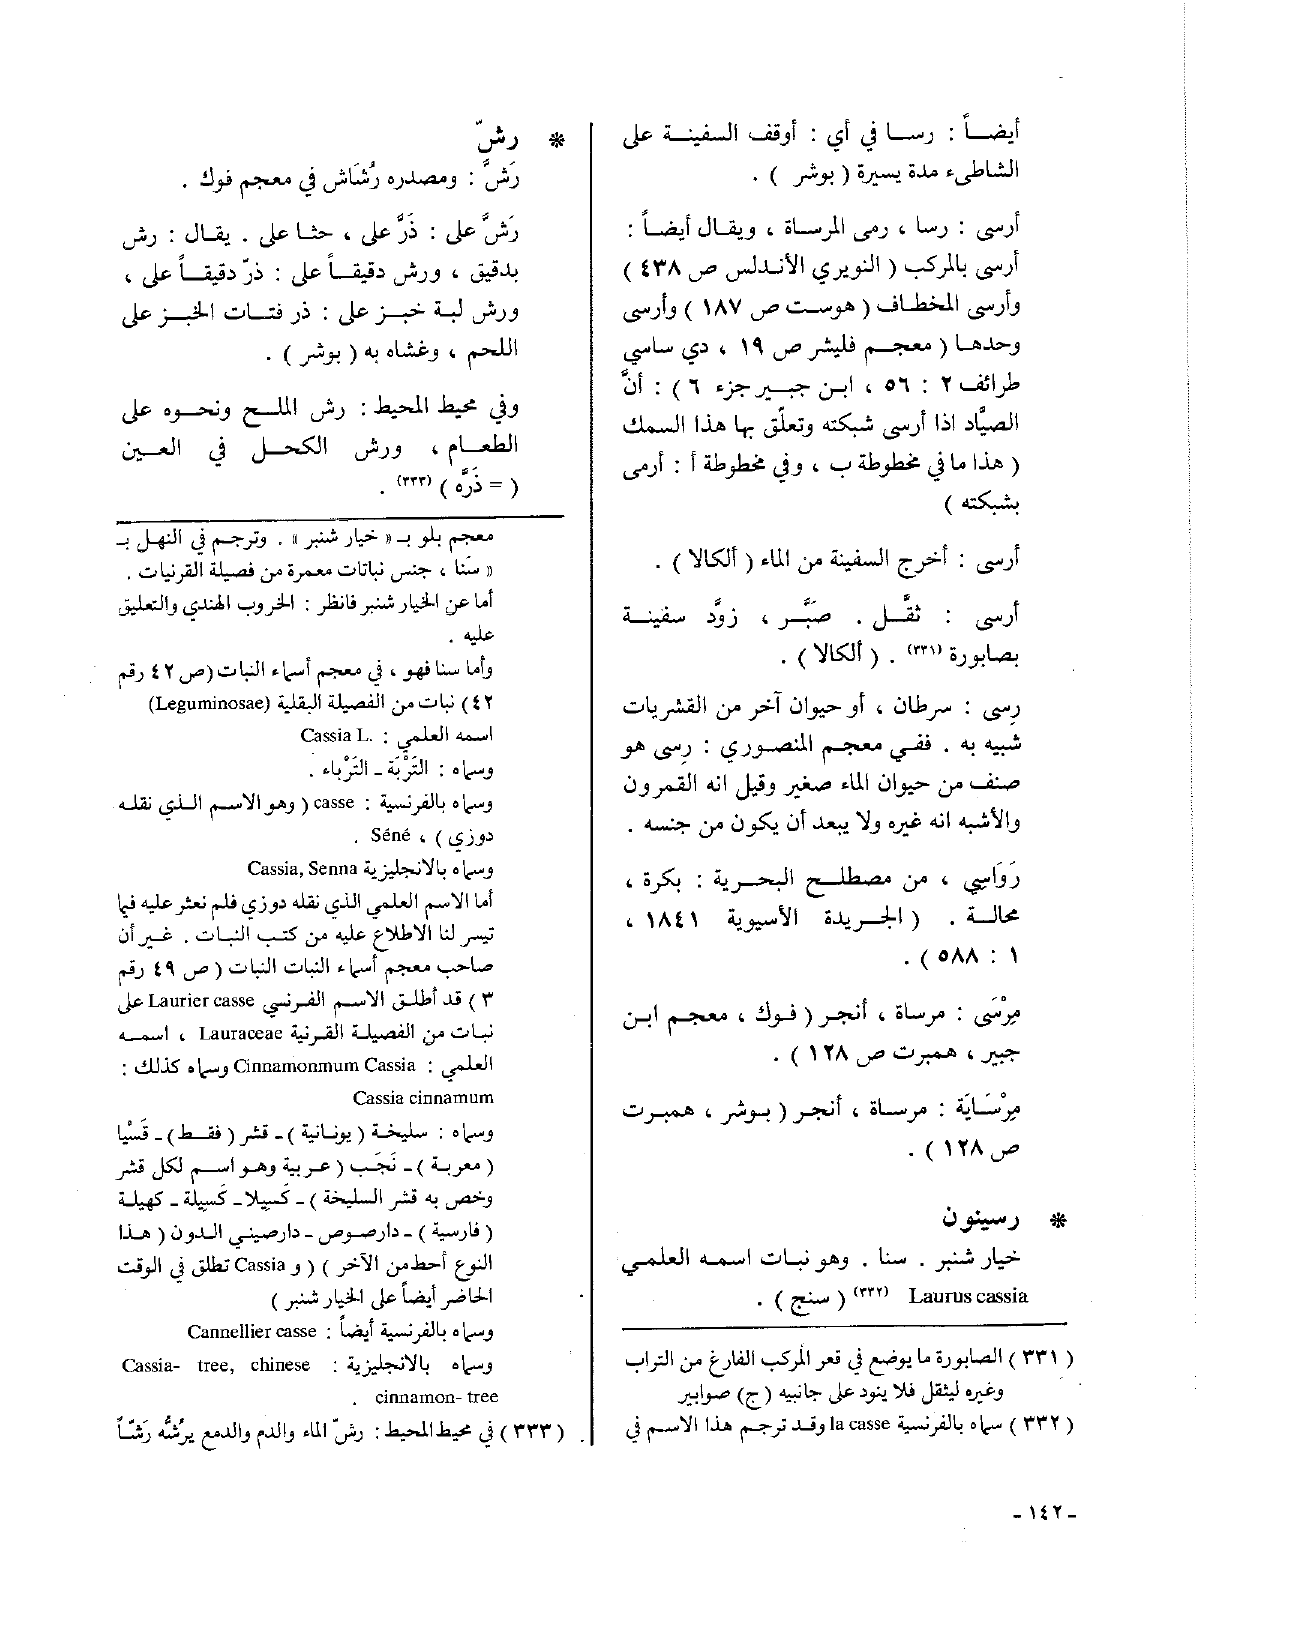 أيضـاً : رسـا في أي : أوقف السفينـة على
الشاطىء مدة يسيرة ( بوشر ) .
أرسى : رسا ، رمى المرساة ، ويقـال أيضـاً :
أرسى بالمركب ( النويري الأندلس ص ٤٣٨ )
وأرسى الخطـاف ( هوست ص ١٨٧ ) وأرسى
وحدهـا ( معجـم فليشر ص ١٩ ، دي ساسي
طرائف ٢ : ٥٦ ، ابـن جبـير جزء ٦ ) : أنَّ
الصيَّاد اذا أرسى شبكته وتعلّق بها هذا السمك
( هذا ما في مخطوطة ب ، وفي مخطوطة أ : أرمى
بشبكته )
أرسى : أخرج السفينة من الماء ( ألكالا ) .
أرسى : ثقَّـل . صبَّـر ، زوَّد سفينـة
بصابورة (٣٣١) . ( ألكالا ) .
رِسى : سرطان ، أو حيوان آخر من القشريات
شبيه به . ففـي معجـم المنصـوري : رِسى هو
صنف من حيوان الماء صغير وقيل انه القمرون
والأشبه انه غيره ولا يبعد أن يكون من جنسه .
رَوَاسِي ، من مصطلـح البحـرية : بكرة ،
محالـة . ( الجريدة الأسيوية ١٨٤١ ،
١ : ٥٨٨ ) .
مِرْسَى : مرساة ، أنجر ( فـوك ، معجـم ابـن
جبير ، همبرت ص ١٢٨ ) .
مِرْسَايَة : مرسـاة ، أنجـر ( بـوشر ، همبـرت
ص ١٢٨ ) .
* رسينون
خيار شنبر . سنا . وهو نبـات اسمـه العلمـي
Laurus cassia (٣٣٢) ( سنج ) .
( ٣٣١ ) الصابورة ما يوضع في قعر المركب الفارغ من التراب
وغيره ليثقل فلا ينود على جانبيه ( ج ) صوابير
( ٣٣٢ ) سماه بالفرنسية la casse وقـد ترجـم هـذا الاسـم في
* رشّ
رَشَّ : ومصدره رُشَاش في معجم فوك .
رَشَّ على : ذَرَّ على ، حثـا على . يقـال : رش
بدقيق ، ورش دقيقـاً على : ذرّ دقيقـاً على ،
ورش لبـة خبـز على : ذر فتـات الخبـز على
اللحم ، وغشاه به ( بوشر ) .
وفي محيط المحيط : رش الملـح ونحـوه على
الطعـام ، ورش الكحـل في العـين
( = ذرَّه ) (٣٣٣) .
معجم بلو بـ « خيار شنبر » . وترجـم في النهل بـ
« سَنا ، جنس نباتات معمرة من فصيلة القرنيات .
أما عن الخيار شنبر فانظر : الخروب الهندي والتعليق
عليه .
وأما سنا فهو ، في معجم أسماء النبات (ص ٤٢ رقم
٤٢ ) نبات من الفصيلة البقلية (Leguminosae)
اسمه العلمي : Cassia L.
وسماه : التَرْبَة ـ التَرْباء .
وسماه بالفرنسية : casse ( وهو الاسـم الـذي نقلـه
دوزي ) ، Séné .
وسماه بالانجليزية Cassia, Senna
أما الاسم العلمي الذي نقله دوزي فلم نعثر عليه فيما
تيسر لنا الاطلاع عليه من كتـب النبـات . غـير أن
صاحب معجم أسماء النبات النبات ( ص ٤٩ رقم
٣ ) قد أطلق الاسم الفرنسي Laurier casse على
نبـات من الفصيلـة القـرنية Lauraceae ، اسمـه
العلمي : Cinnamonmum Cassia وسماه كذلك :
Cassia cinnamum
وسماه : سليخـة ( يونـانية ) ـ قشر ( فقـط ) ـ قَسْيا
( معربـة ) ـ نَجَـب ( عـربية وهـو اسـم لكل قشر
وخص به قشر السليخة ) ـ كَسِيلا ـ كَسِيلة ـ كهيلة
( فارسية ) ـ دارصـوص ـ دارصيني الـدون ( هـذا
النوع أحط من الآخر ) ( و Cassia تطلق في الوقت
الحاضر أيضاً على الخيار شنبر )
وسماه بالفرنسية أيضاً : Cannellier casse
وسماه بالانجليزية : Cassia- tree, chinese
cinnamon- tree .
( ٣٣٣ ) في محيط المحيط : رشّ الماء والدم والدمع يرُشُّه رَشّاً
- ١٤٢ -